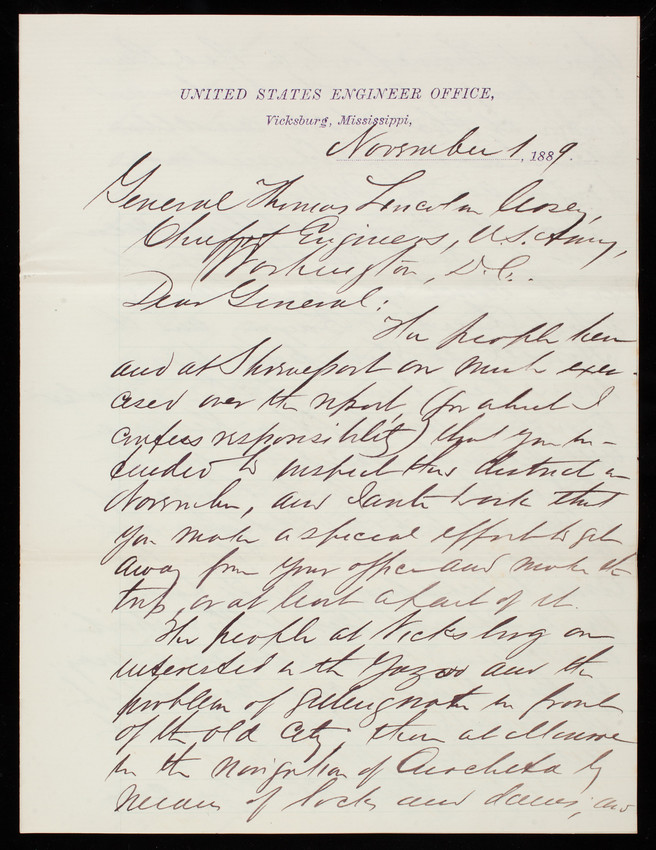 UNITED STATES ENGINEER OFFICE,
Vicksburg, Mississippi,
November 1, 1889.
General Thomas Lincoln Casey,
Chief of Engineers, U.S. Army,
Washington, D.C.
Dear General:
The people here
and at Shreveport are much exer-
cised over the report, (for which I
confess responsibility) that you in-
tended to inspect this district in
November, and I that
you make a special effort to get
away from your office and make the
trip, or at least a part of it.
The people at Vicksburg are
interested in the Yazoo and the
problem of getting water in front
of the old city; those at Monroe
in the navigation of Ouachita by
means of locks and dams; and